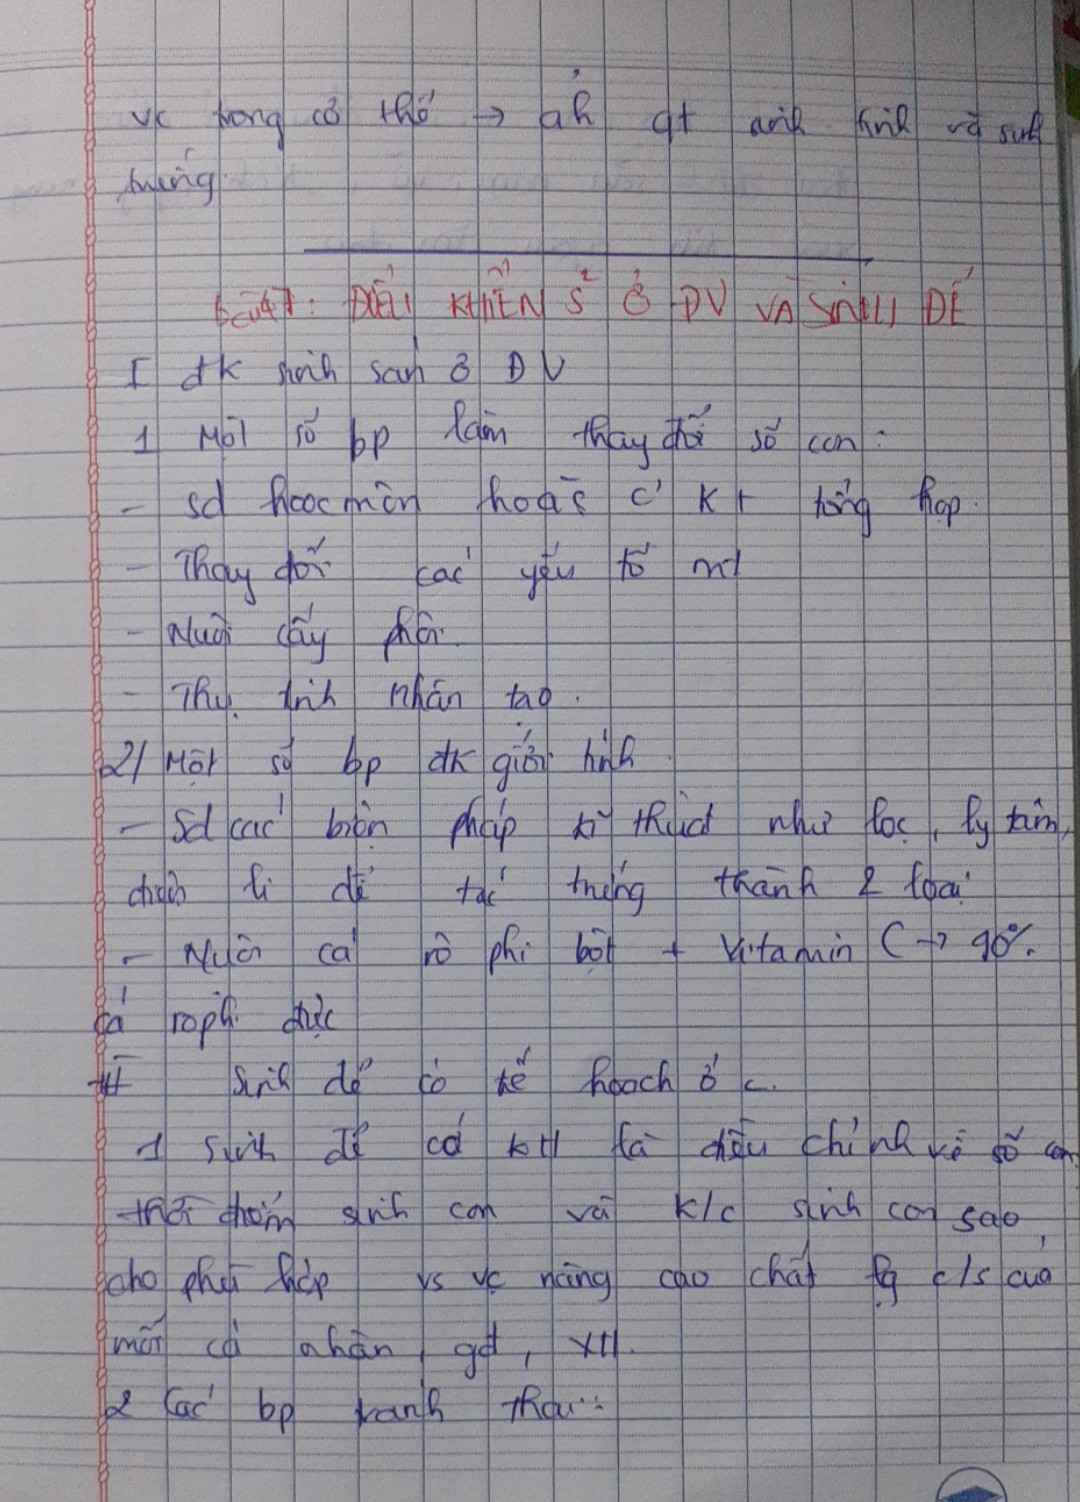 vc trong cơ thể → ảh qt sinh tinh và sinh
trứng.
Bài 47: ĐIỀU KHIỂN S² Ở ĐV VÀ SINH ĐẺ
I đk sinh sản ở ĐV
1 Một số bp làm thay đổi số con:
- sd hoocmôn hoặc c' KT tổng hợp.
- Thay đổi các yếu tố mt
- Nuôi cấy phôi.
- Thụ tinh nhân tạo.
2/ Một số bp đk giới tính
- Sd các biện pháp kĩ thuật như lọc, ly tâm,
điện li để tác trứng thành 2 loại
- Nuôi cá rô phi bột + Vitamin C → 90%.
cá rôphi đực
II Sinh đẻ có kế hoạch ở
1 Sinh đẻ có KH là điều chỉnh về số con
thời điểm sinh con và k/c sinh con sao
cho phù hợp vs vc nâng cao chất lg c/s của
mỗi cá nhân, gđ, XH.
2 Các bp tránh thai: